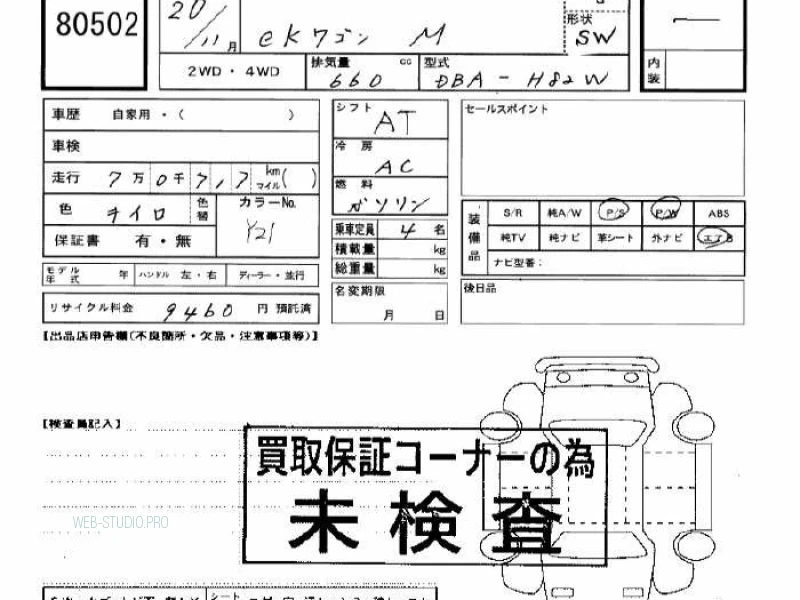 80502
20/11 月
ekワゴン M
形状
SW
一
内装
2WD・4WD
排気量 cc
660
型式
DBA-H82W
車歴 自家用・( )
車検
走行 7万0千7,17 km マイル( )
色 キイロ
色替
カラーNo.
Y21
保証書 有・無
モデル年式 年
ハンドル 左・右
ディーラー・並行
リサイクル料金 9460 円 預託済
シフト
AT
冷房
AC
燃料
ガソリン
乗車定員 4 名
積載量 kg
総重量 kg
名変期限
月 日
セールスポイント
装備品
S/R 純A/W P/S P/W ABS
純TV 純ナビ 革シート 外ナビ エアB
ナビ型番:
後日品
【出品店申告欄(不良箇所・欠品・注意事項等)】
【検査員記入】
買取保証コーナーの為
未検査
WEB-STUDIO.PRO
シート